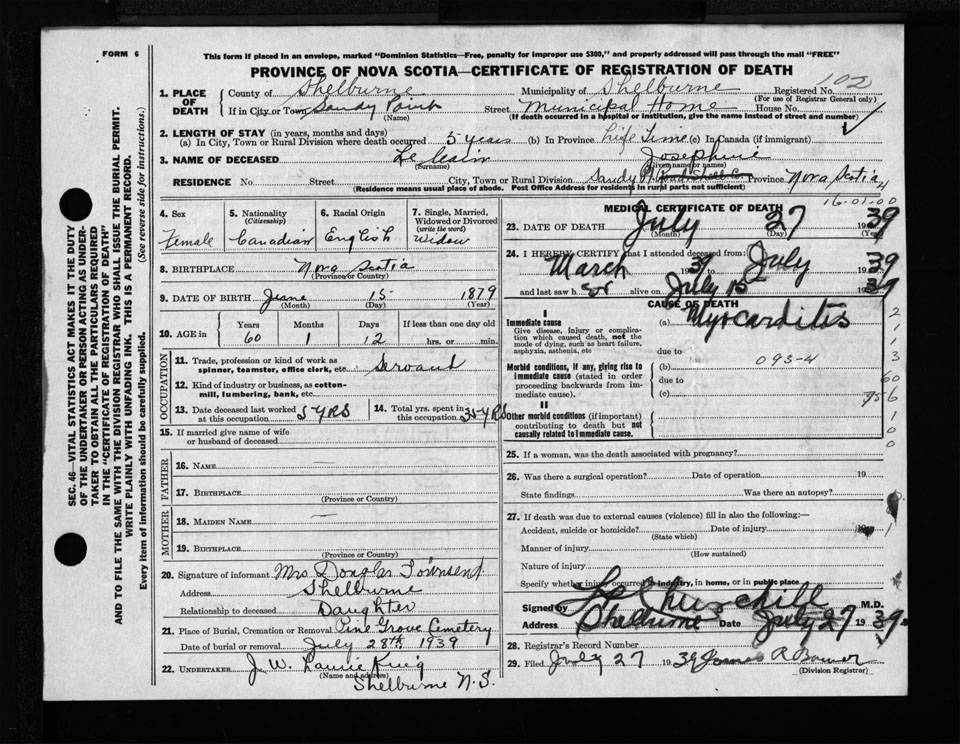 FORM 6
This form if placed in an envelope, marked "Dominion Statistics—Free, penalty for improper use $300," and properly addressed will pass through the mail "FREE"
PROVINCE OF NOVA SCOTIA—CERTIFICATE OF REGISTRATION OF DEATH
1. PLACE OF DEATH
County of Shelburne Municipality of Shelburne Registered No. 102
(For use of Registrar General only)
If in City or Town Sandy Point Street Municipal Home House No.
(Name) (If death occurred in a hospital or institution, give the name instead of street and number)
2. LENGTH OF STAY (in years, months and days)
(a) In City, Town or Rural Division where death occurred 5 years (b) In Province Life Time (c) In Canada (if immigrant)
3. NAME OF DECEASED Josephine
(Surname) (Given name or names)
RESIDENCE No. Street City, Town or Rural Division Sandy Pt Province Nova Scotia
(Residence means usual place of abode. Post Office Address for residents in rural parts not sufficient)
4
16-01-00
4. Sex Female
5. Nationality (Citizenship) Canadian
6. Racial Origin English
7. Single, Married, Widowed or Divorced (write the word) Widow
8. BIRTHPLACE Nova Scotia
(Province or Country)
9. DATE OF BIRTH June 15 1879
(Month) (Day) (Year)
10. AGE in Years Months Days If less than one day old
60 1 12 hrs. or min.
OCCUPATION
11. Trade, profession or kind of work as spinner, teamster, office clerk, etc. Servant
12. Kind of industry or business, as cotton-mill, lumbering, bank, etc.
13. Date deceased last worked at this occupation 5 YRS
14. Total yrs. spent in this occupation 35-YRS
15. If married give name of wife or husband of deceased
FATHER
16. NAME —
17. BIRTHPLACE
(Province or Country)
MOTHER
18. MAIDEN NAME —
19. BIRTHPLACE
(Province or Country)
20. Signature of informant Mrs Douglas Townsend
Address Shelburne
Relationship to deceased Daughter
21. Place of Burial, Cremation or Removal Pine Grove Cemetery
Date of burial or removal July 28th 1939
22. UNDERTAKER J. W.
(Name and address)
Shelburne N.S.
MEDICAL CERTIFICATE OF DEATH
23. DATE OF DEATH July 27 1939
(Month) (Day) (Year)
24. I HEREBY CERTIFY that I attended deceased from:
March 1939 to July 1939
and last saw her alive on July 15 1939
CAUSE OF DEATH
I
Immediate cause (a) Myocarditis
Give disease, injury or complication which caused death, not the mode of dying, such as heart failure, asphyxia, asthenia, etc
due to
Morbid conditions, if any, giving rise to immediate cause (stated in order proceeding backwards from immediate cause).
(b) 093-4
due to
(c)
II
Other morbid conditions (if important) contributing to death but not causally related to immediate cause.
2
1
1
3
60
756
1
0
0
25. If a woman, was the death associated with pregnancy?
26. Was there a surgical operation? Date of operation 19
State findings Was there an autopsy?
27. If death was due to external causes (violence) fill in also the following:—
Accident, suicide or homicide? Date of injury 19
(State which)
Manner of injury
(How sustained)
Nature of injury
Specify whether injury occurred in industry, in home, or in public place
Signed by Churchill M.D.
Address Shelburne Date July 27 1939
28. Registrar's Record Number
29. Filed July 27 1939 James R Bower
(Division Registrar)
SEC. 46—VITAL STATISTICS ACT MAKES IT THE DUTY
OF THE UNDERTAKER OR PERSON ACTING AS UNDER-
TAKER TO OBTAIN ALL THE PARTICULARS REQUIRED
IN THE "CERTIFICATE OF REGISTRATION OF DEATH"
AND TO FILE THE SAME WITH THE DIVISION REGISTRAR WHO SHALL ISSUE THE BURIAL PERMIT.
WRITE PLAINLY WITH UNFADING INK. THIS IS A PERMANENT RECORD.
Every item of information should be carefully supplied. (See reverse side for Instructions.)